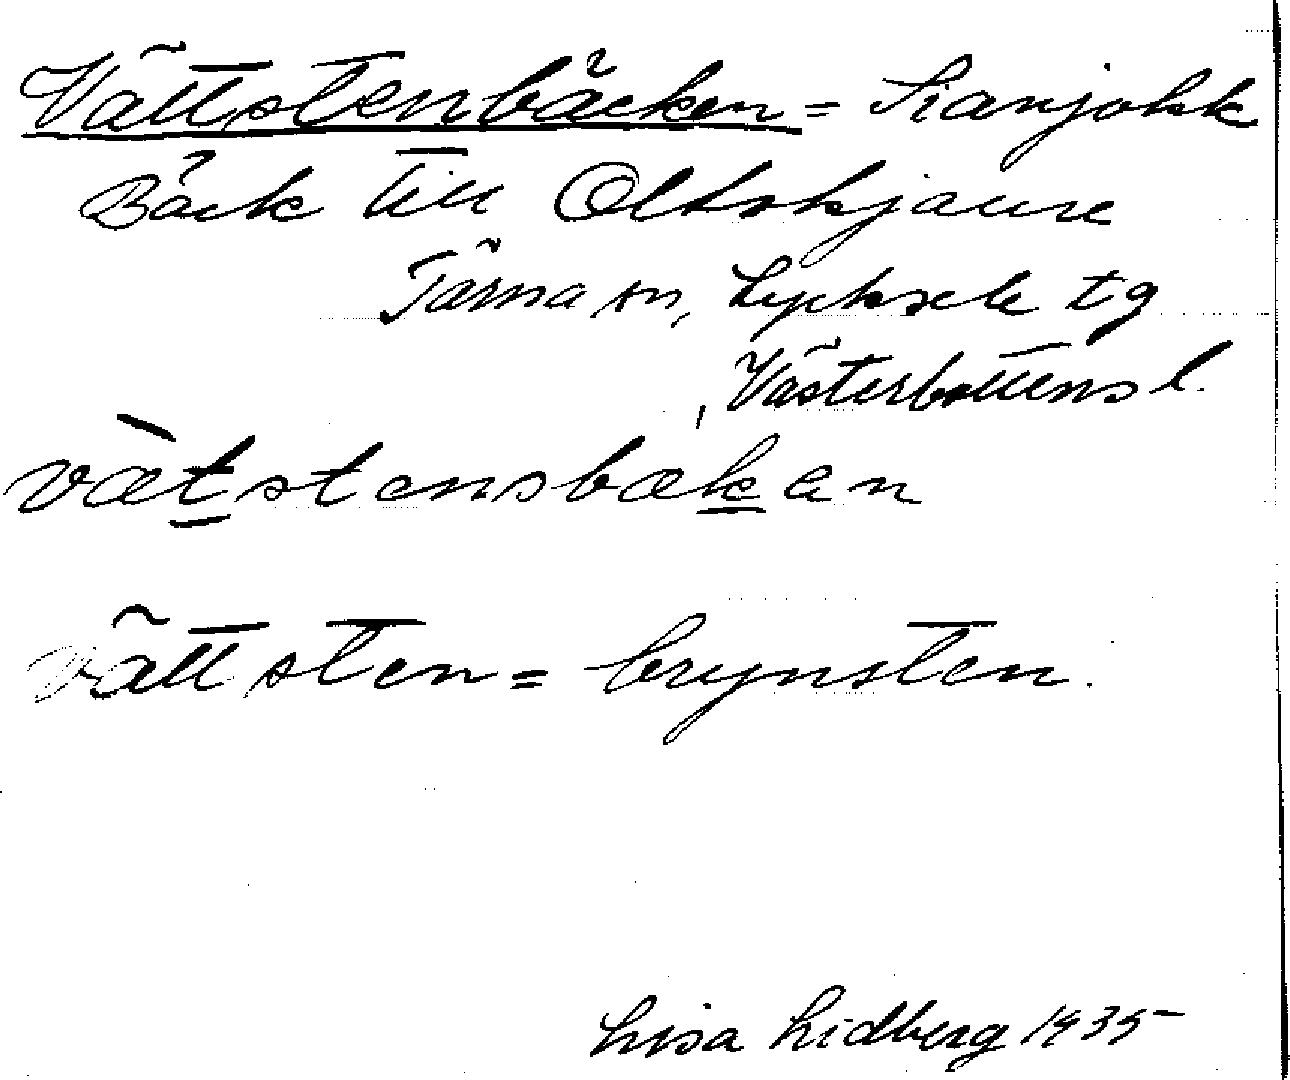 Vättstenbäcken = Sianjokk
Bäck till Oltokjaure
Tärna sn, Lycksele tg
Västerbottens l.
væ̀tstensbæken
vättsten = brynsten.
Lisa Lidberg 1935